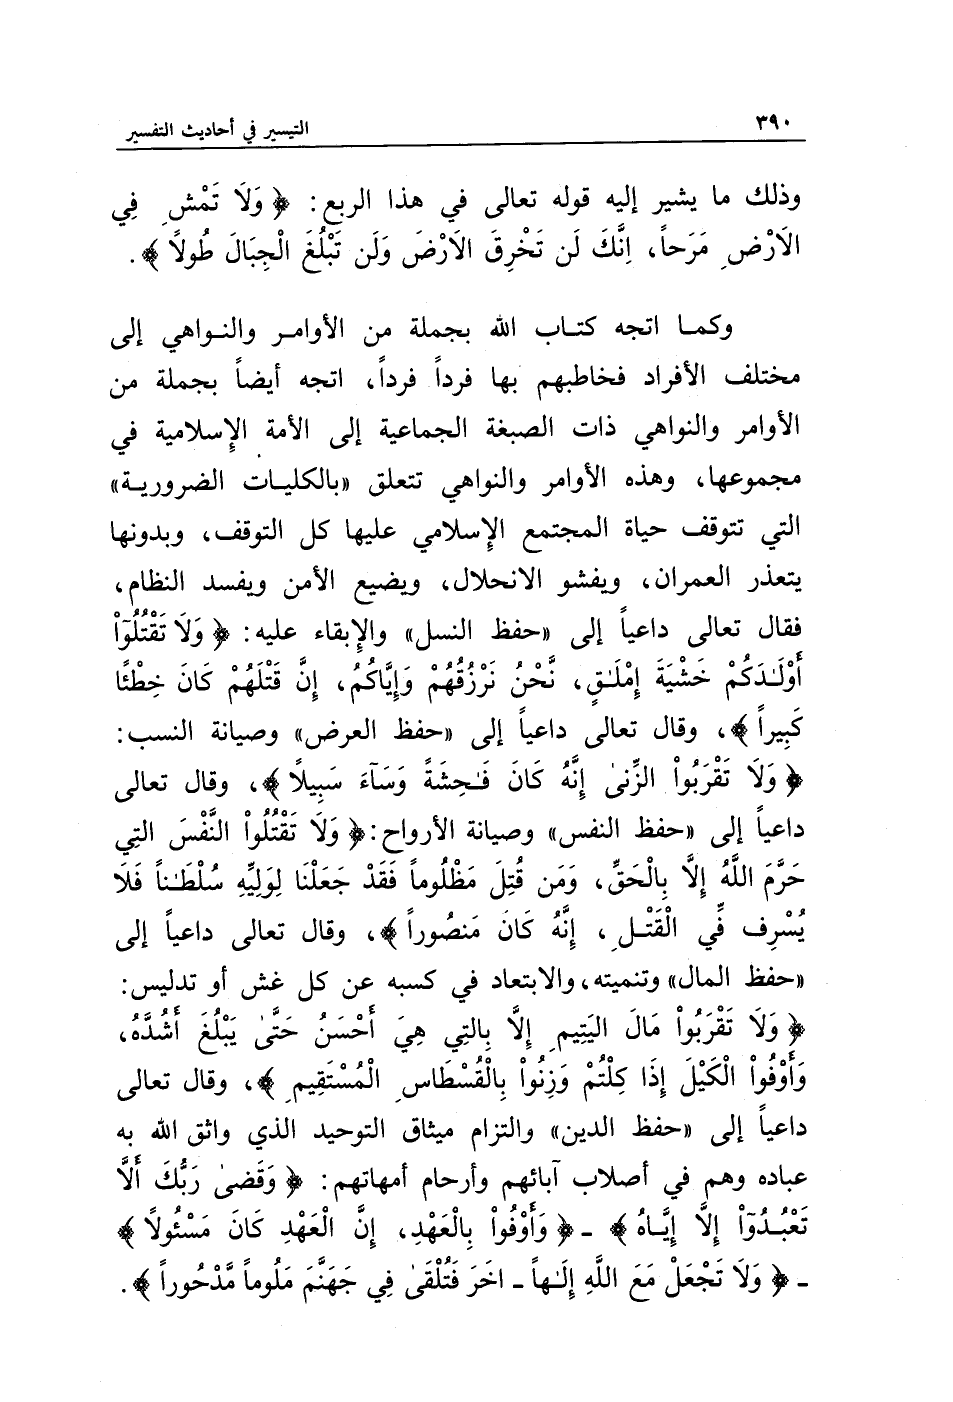 ٣٩٠
التيسير في أحاديث التفسير
وذلك ما يشير إليه قوله تعالى في هذا الربع: ﴿ وَلَا تَمْشِ فِي
الَارْضِ مَرَحاً، اِنَّكَ لَن تَخْرِقَ الَارْضَ وَلَن تَبْلُغَ الْجِبَالَ طُولاً ﴾.
وكمـا اتجه كتـاب الله بجملة من الأوامـر والنـواهي إلى
مختلف الأفراد فخاطبهم بها فرداً فرداً، اتجه أيضاً بجملة من
الأوامر والنواهي ذات الصبغة الجماعية إلى الأمة الإسلامية في
مجموعها، وهذه الأوامر والنواهي تتعلق «بالكليـات الضروريـة»
التي تتوقف حياة المجتمع الإسلامي عليها كل التوقف، وبدونها
يتعذر العمران، ويفشو الانحلال، ويضيع الأمن ويفسد النظام،
فقال تعالى داعياً إلى «حفظ النسل» والإبقاء عليه: ﴿ وَلَا تَقْتُلُوٓاْ
أَوْلَـٰدَكُمْ خَشْيَةَ إِمْلَـٰقٍ، نَّحْنُ نَرْزُقُهُمْ وَإِيَّاكُمُ، إِنَّ قَتْلَهُمْ كَانَ خِطْئًا
كَبِيراً ﴾، وقال تعالى داعياً إلى «حفظ العرض» وصيانة النسب:
﴿ وَلَا تَقْرَبُواْ الزِّنىٰ إِنَّهُ كَانَ فَـٰحِشَةً وَسَآءَ سَبِيلاً ﴾، وقال تعالى
داعياً إلى «حفظ النفس» وصيانة الأرواح: ﴿ وَلَا تَقْتُلُواْ النَّفْسَ التِي
حَرَّمَ اللَّهُ إِلَّا بِالْحَقِّ، وَمَن قُتِلَ مَظْلُوماً فَقَدْ جَعَلْنَا لِوَلِيِّهِ سُلْطَـٰناً فَلَا
يُسْرِف فِّي الْقَتْـلِ، إِنَّهُ كَانَ مَنصُوراً ﴾، وقال تعالى داعياً إلى
«حفظ المال» وتنميته، والابتعاد في كسبه عن كل غش أو تدليس:
﴿ وَلَا تَقْرَبُواْ مَالَ اليَتِيمِ إِلَّا بِالتِي هِيَ أَحْسَنُ حَتَّىٰ يَبْلُغَ أَشُدَّهُ،
وَأَوْفُواْ الْكَيْلَ إِذَا كِلْتُمْ وَزِنُواْ بِالْقُسْطَاسِ الْمُسْتَقِيمِ ﴾، وقال تعالى
داعياً إلى «حفظ الدين» والتزام ميثاق التوحيد الذي واثق الله به
عباده وهم في أصلاب آبائهم وأرحام أمهاتهم: ﴿ وَقَضىٰ رَبُّكَ أَلَّا
تَعْبُـدُوٓاْ إِلَّا إِيَّـاهُ ﴾ ـ ﴿ وَأَوْفُواْ بِالْعَهْدِ، إِنَّ الْعَهْدِ كَانَ مَسْئُولاً ﴾
ـ ﴿ وَلَا تَجْعَلْ مَعَ اللَّهِ إِلَـٰهاً ـ اخَرَ فَتُلْقَىٰ فِي جَهَنَّمَ مَلُوماً مَّدْحُوراً ﴾.